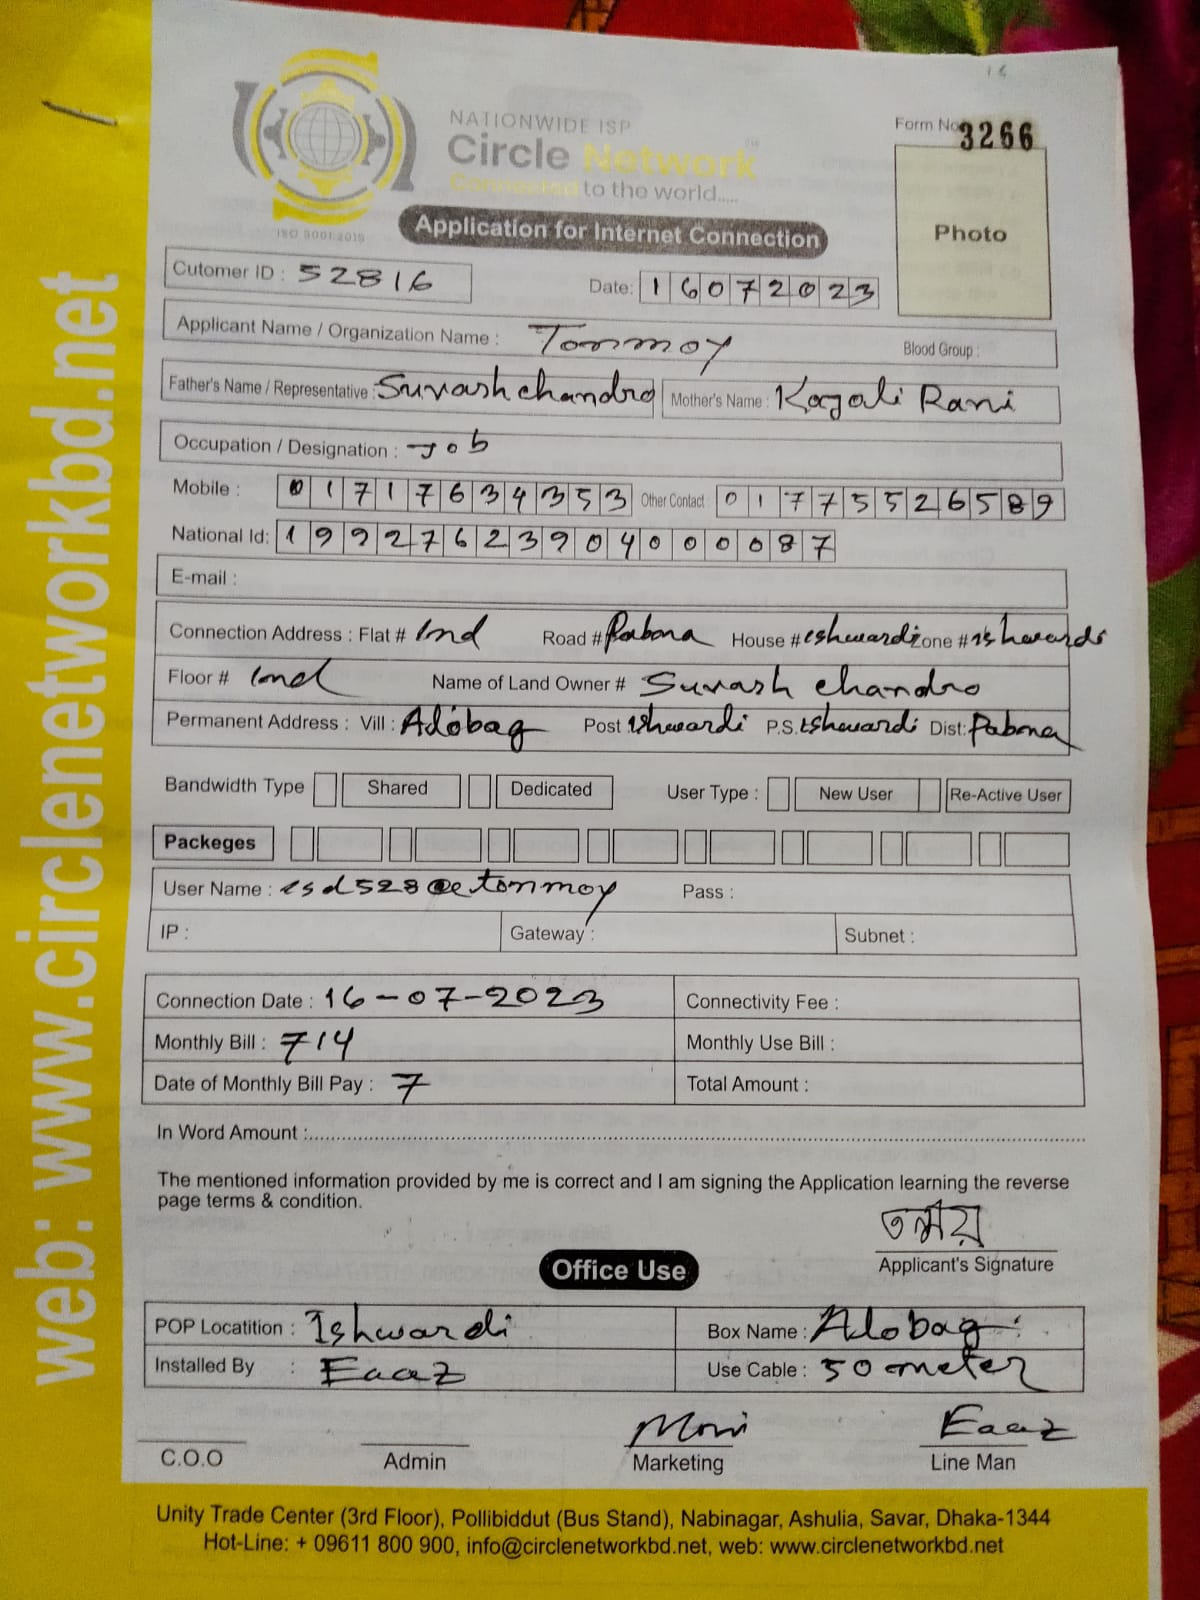 NATIONWIDE ISP
Circle Network
Connected to the world.....
ISO 9001:2015
Form No 3266
Photo
Application for Internet Connection
Cutomer ID : 52816
Date: 16072023
Applicant Name / Organization Name : Tonmoy Blood Group :
Father's Name / Representative : Suvash chandro Mother's Name : Kajali Rani
Occupation / Designation : Job
Mobile : 01717634353 Other Contact 01775526589
National Id: 19927623904000087
E-mail :
Connection Address : Flat # Ind Road # Pabna House # eshwardi Zone # ishwardi
Floor # Ind Name of Land Owner # Suvash chandro
Permanent Address : Vill : Adobag Post : Ishwardi P.S. Ishwardi Dist: Pabna
Bandwidth Type Shared Dedicated User Type : New User Re-Active User
Packeges
User Name : esd528 tonmoy Pass :
IP : Gateway : Subnet :
Connection Date : 16-07-2023 Connectivity Fee :
Monthly Bill : 714 Monthly Use Bill :
Date of Monthly Bill Pay : 7 Total Amount :
In Word Amount :
The mentioned information provided by me is correct and I am signing the Application learning the reverse
page terms & condition.
তন্ময়
Applicant's Signature
Office Use
POP Locatition : Ishwardi Box Name : Adobag
Installed By : Eaaz Use Cable : 50 meter
Moni Eaaz
C.O.O Admin Marketing Line Man
Unity Trade Center (3rd Floor), Pollibiddut (Bus Stand), Nabinagar, Ashulia, Savar, Dhaka-1344
Hot-Line: + 09611 800 900, info@circlenetworkbd.net, web: www.circlenetworkbd.net
web: www.circlenetworkbd.net